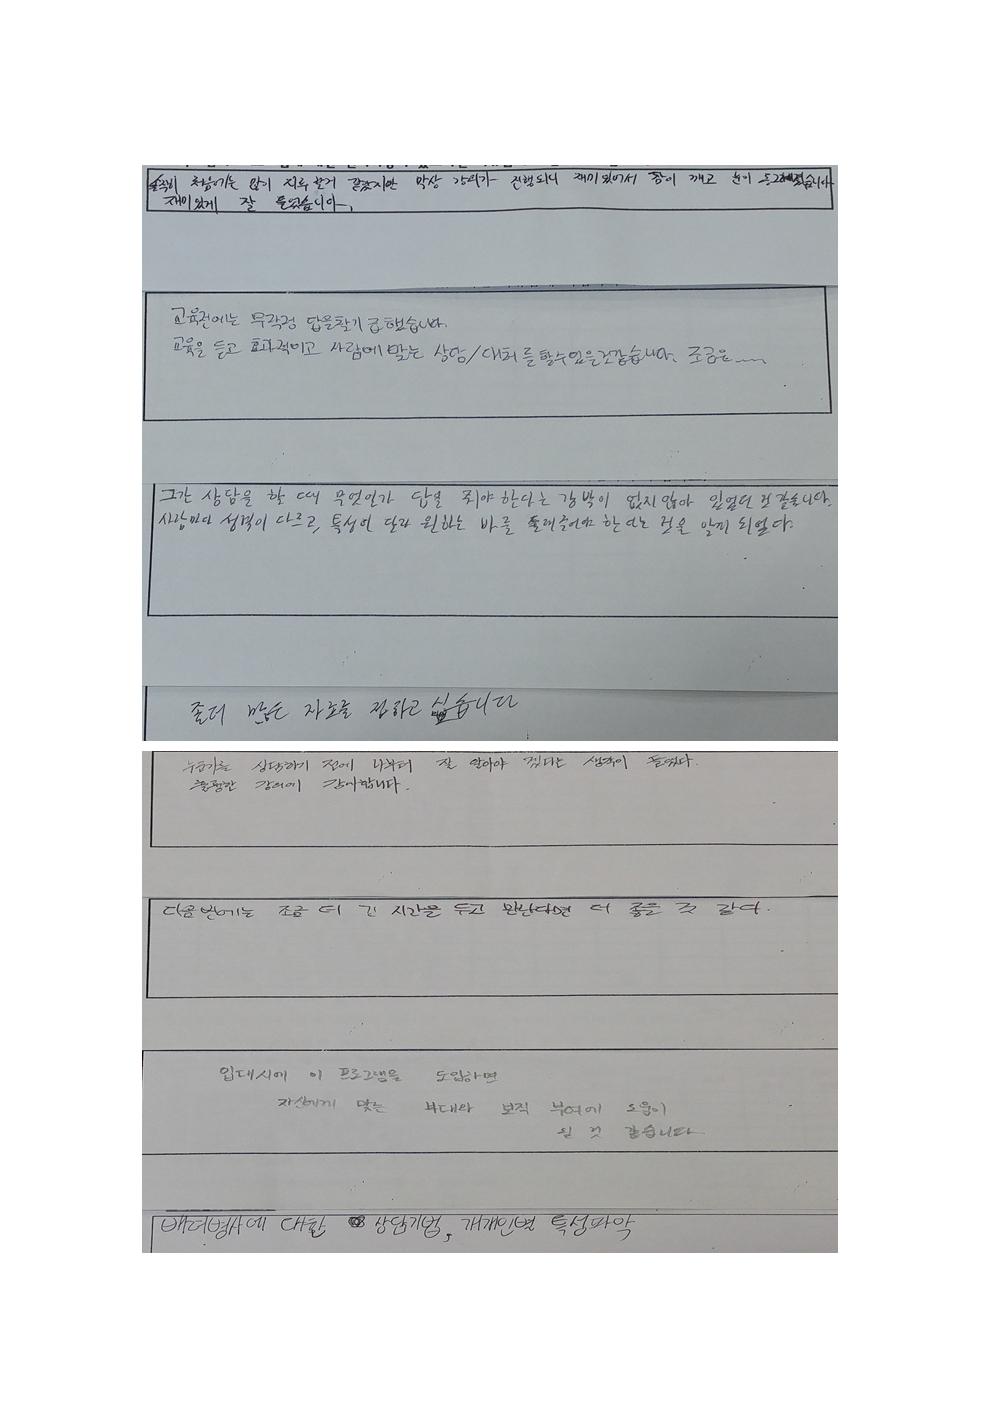 솔직히 처음에는 많이 지루할거 같았지만 막상 강의가 진행되니 재미있어서 잠이 깨고 눈이 습니다
재미있게 잘 들었습니다.
교육전에는 무작정 답을찾기 급했습니다.
교육을 듣고 효과적이고 사람에 맞는 상담/대처를 할수있을것같습니다. 조금은......
그간 상담을 할 때 무엇인가 답을 줘야 한다는 강박이 없지 않아 있었던 것 같습니다.
사람마다 성격이 다르고, 특성이 달라 원하는 바를 한다는 것을 알게 되었다.
좀더 많은 자료를 접하고 싶습니다
누군가를 상담하기 전에 나부터 잘 알아야 겠다는 생각이 들었다.
훌륭한 강의에 감사합니다.
다음번에는 조금 더 긴 시간을 두고 만난다면 더 좋을 것 같다.
입대시에 이 프로그램을 도입하면
자신에게 맞는 부대와 보직 부여에 도움이
될 것 같습니다
배려병사에 대한 상담기법, 개개인별 특성파악